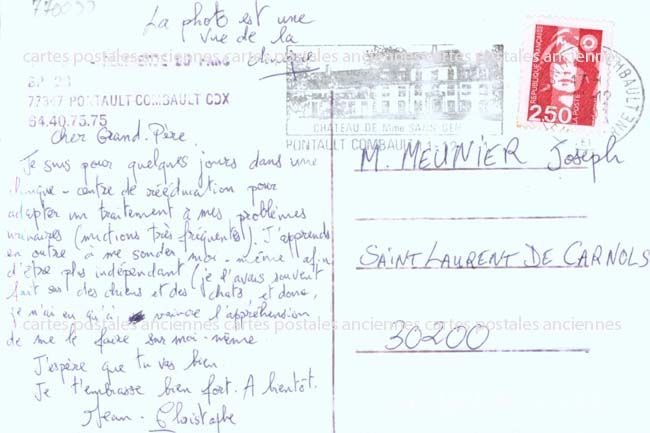 770033
La photo est une
vue de la
clinique
cartes postales anciennes cartes postales anciennes cartes postales anciennes
BP 28
77347 PONTAULT COMBAULT CDX
64.40.75.75
CHATEAU DE Mme SANS GENE
PONTAULT COMBAULT
REPUBLIQUE FRANÇAISE
LA POSTE
2,50
Cher Grand-Père,
Je suis pour quelques jours dans une
clinique-centre de rééducation pour
adapter un traitement à mes problèmes
urinaires (mictions très fréquentes). J'apprends
en outre à me sonder moi-même afin
d'être plus indépendant (je l'avais souvent
fait sur des chiens et des chats, et donc,
je n'ai eu qu'à vaincre l'appréhension
de me le faire sur moi-même.
J'espère que tu vas bien.
Je t'embrasse bien fort. A bientôt.
Jean-Christophe
M. MEUNIER Joseph
SAINT LAURENT DE CARNOLS
cartes postales anciennes cartes postales anciennes cartes postales anciennes
30200